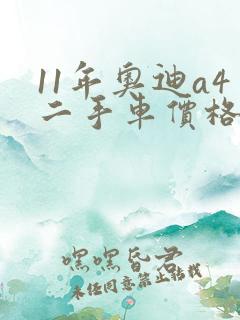 11年奧迪a4
二手車價格
嘿嘿昏君
未任同意禁止轉載